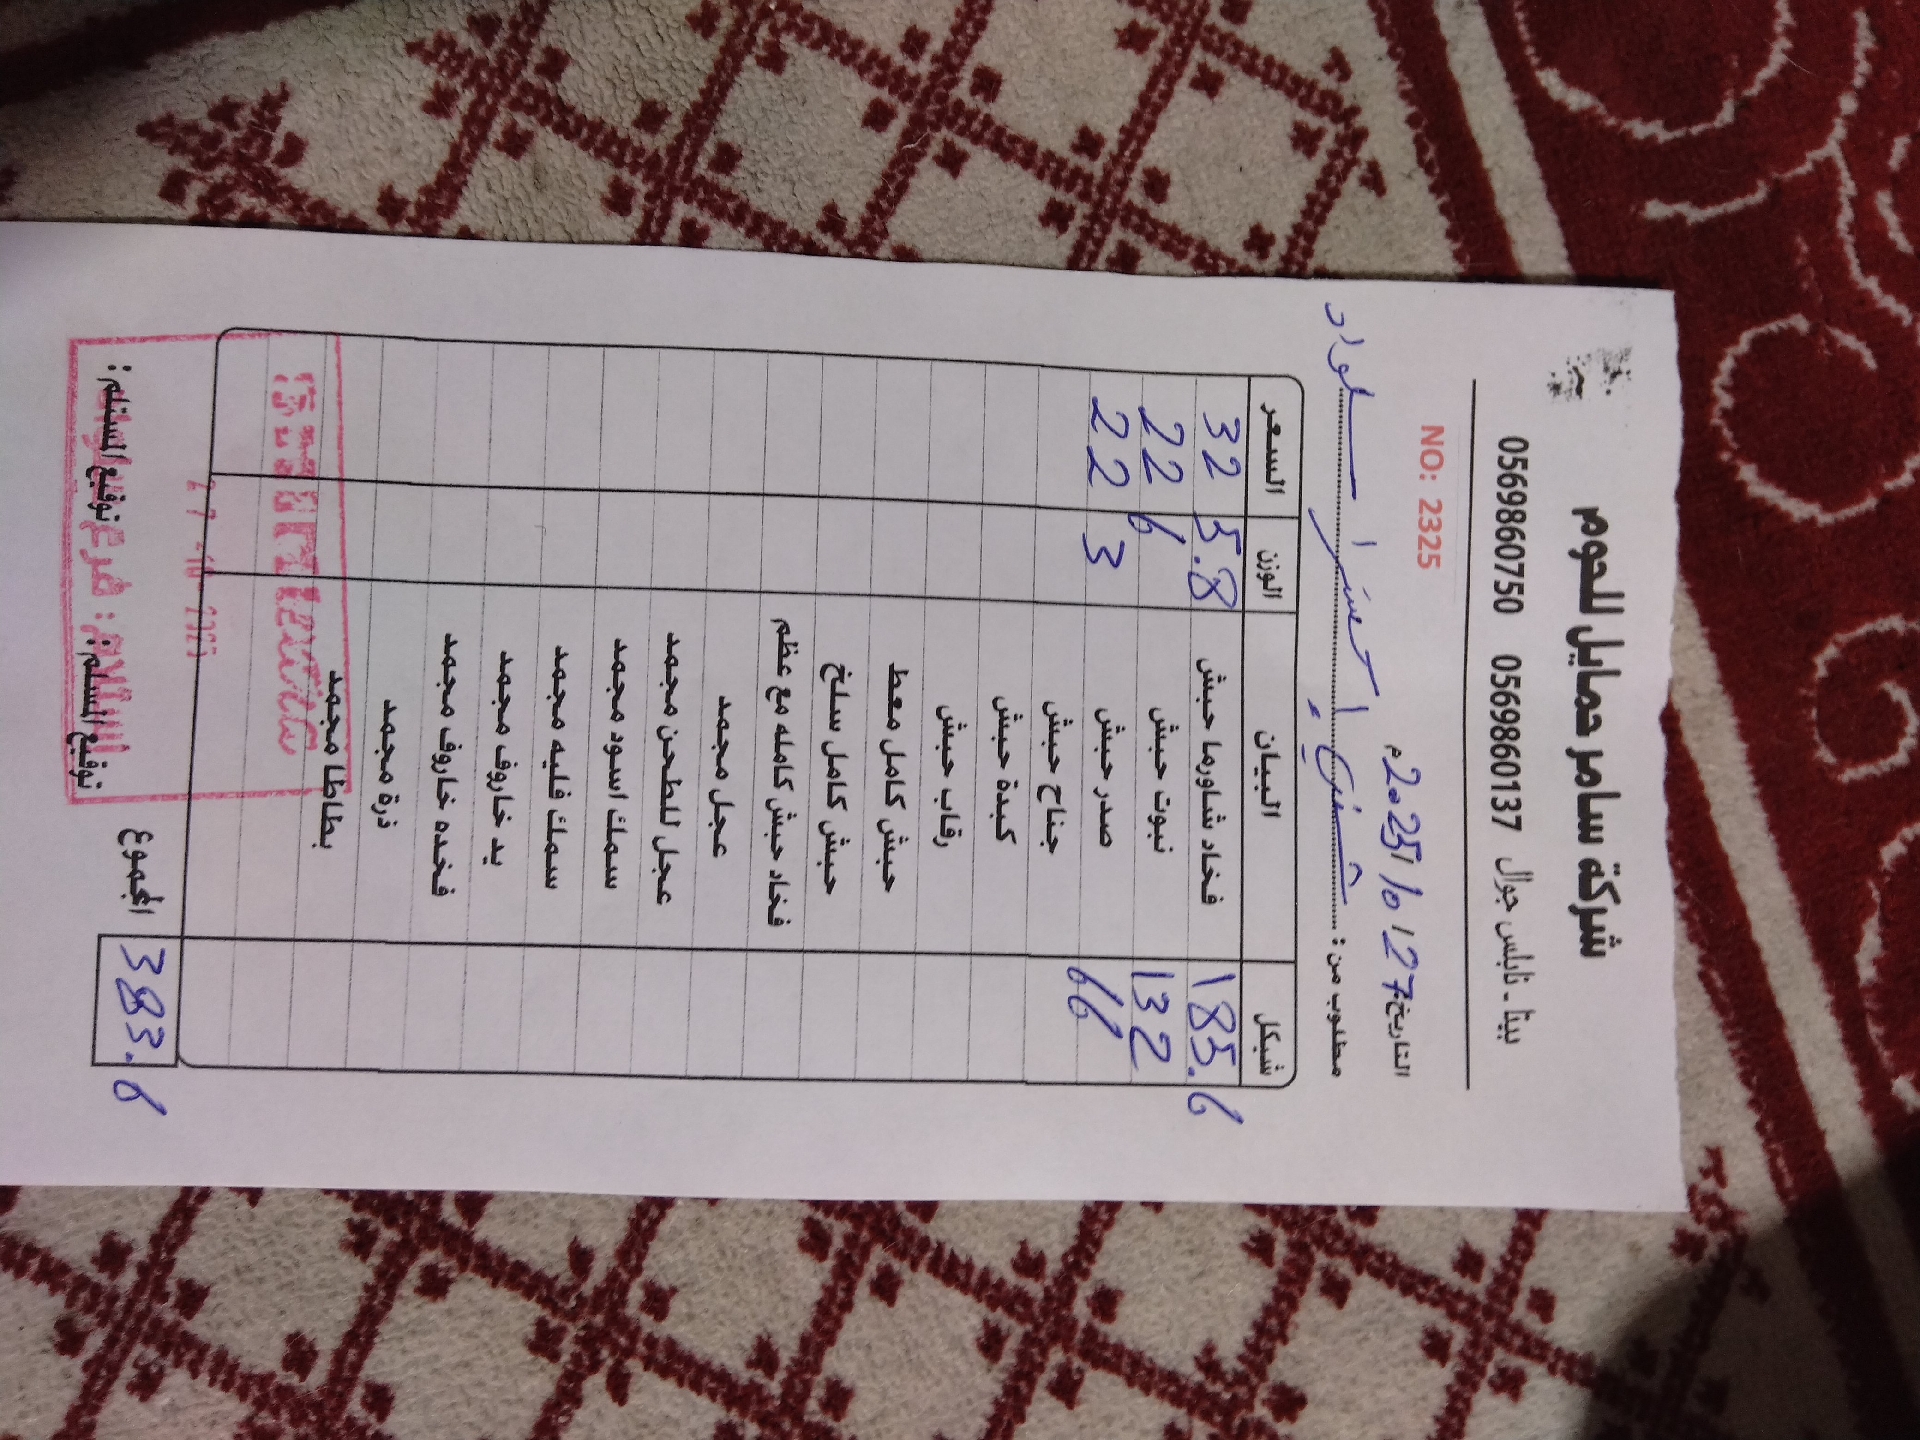 شركة سامر حمايل للحوم
بيتا - نابلس جوال 0569860137 0569860750
NO: 2325
التاريخ 27 / 10 / 2025 م
مطلوب من :
شيكل البيان الوزن السعر
185.6 فخاد شاورما حبش 5.8 32
132 نبوت حبش 6 22
66 صدر حبش 3 22
جناح حبش
كبدة حبش
رقاب حبش
حبش كامل معط
حبش كامل سلخ
فخاد حبش كامله مع عظم
عجل مجمد
عجل للطحن مجمد
سمك اسود مجمد
سمك فليه مجمد
يد خاروف مجمد
فخده خاروف مجمد
ذرة مجمد
بطاطا مجمد
المجموع 383.6
توقيع المسلم : توقيع المستلم :